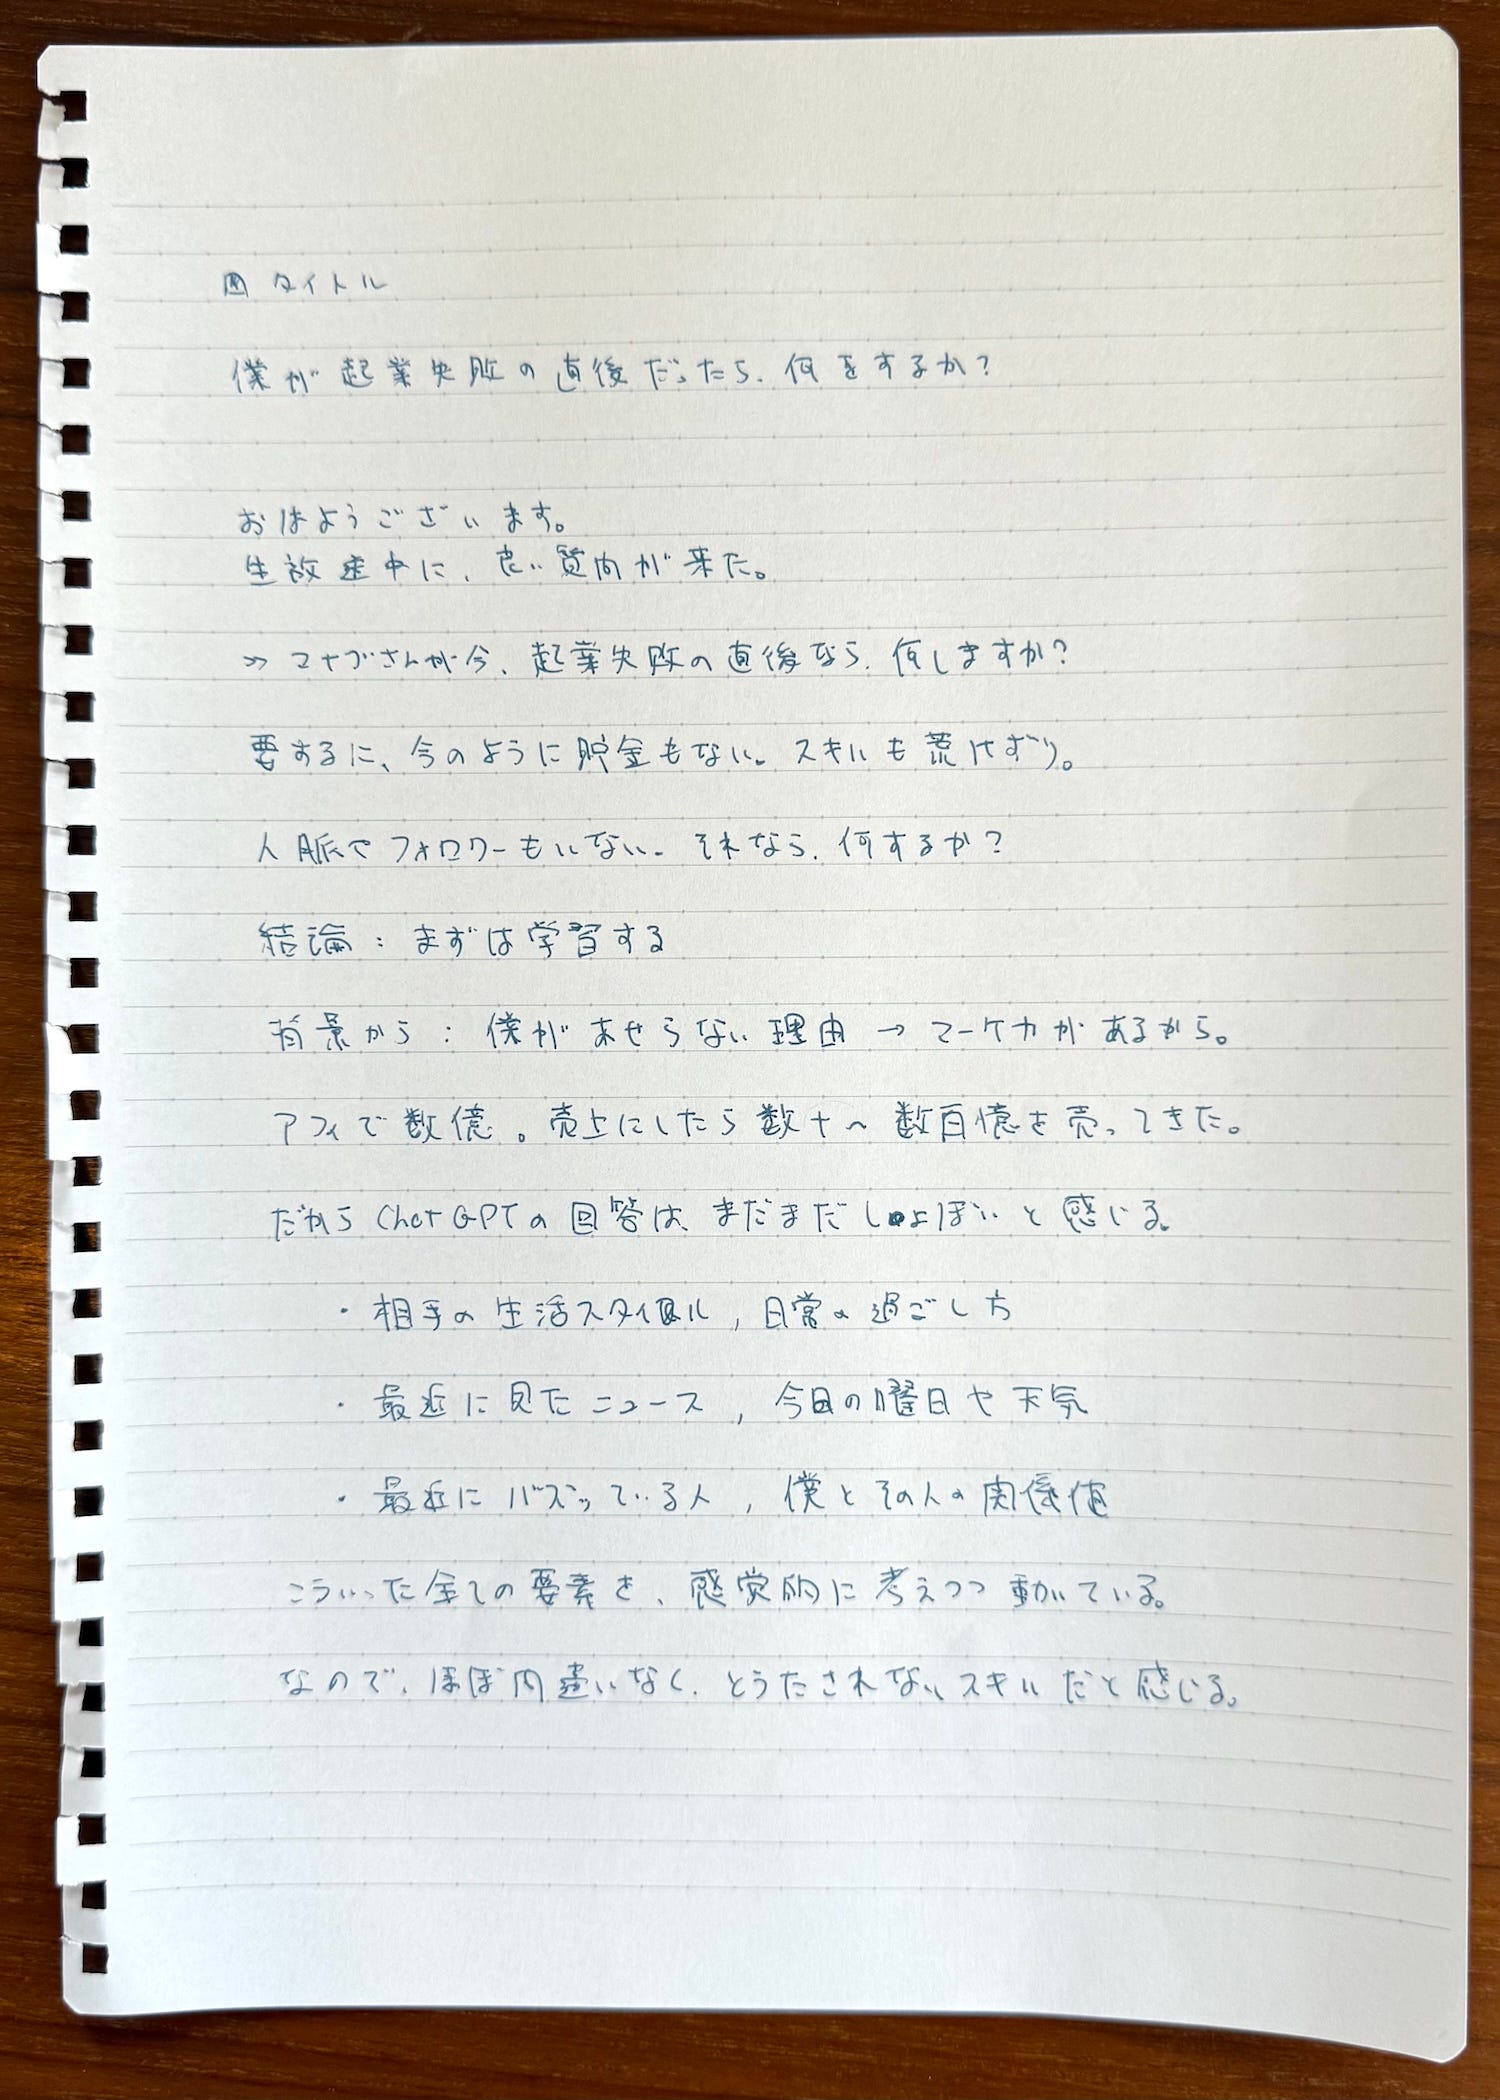 タイトル
僕が起業失敗の直後だったら、何をするか？
おはようございます。
生放送中に、良い質問が来た。
≫ マナブさんが今、起業失敗の直後なら、何しますか？
要するに、今のように貯金もない。スキルも荒けずり。
人脈やフォロワーもいない。それなら、何するか？
結論：まずは学習する
背景から：僕があせらない理由 → マーケ力があるから。
アフィで数億。売上にしたら数十〜数百億を売ってきた。
だから ChatGPTの回答は、まだまだしょぼいと感じる。
・相手の生活スタイル，日常の過ごし方
・最近に見たニュース，今日の曜日や天気
・最近にバズっている人，僕とその人の関係値
こういった全ての要素を、感覚的に考えつつ動いている。
なので、ほぼ間違いなく、とうたされないスキルだと感じる。